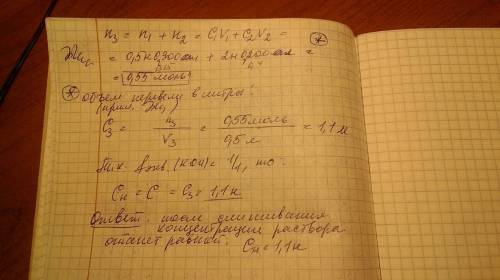 n₃ = n₁ + n₂ = C₁V₁ + C₂V₂ =
= 0,5н 0,300 + 2н 0,200 =
0,15 0,4
= 0,55 моль
* объем перевели в литры
(прим.
C₃ = n₃/V₃ = 0,55 моль/0,5 л = 1,1 М
fэкв. (KOH) = 1/1, то:
Cн = C = C₃ = 1,1 н
Ответ: после смешивания
концентрация раствора
станет равной: Cн = 1,1 н